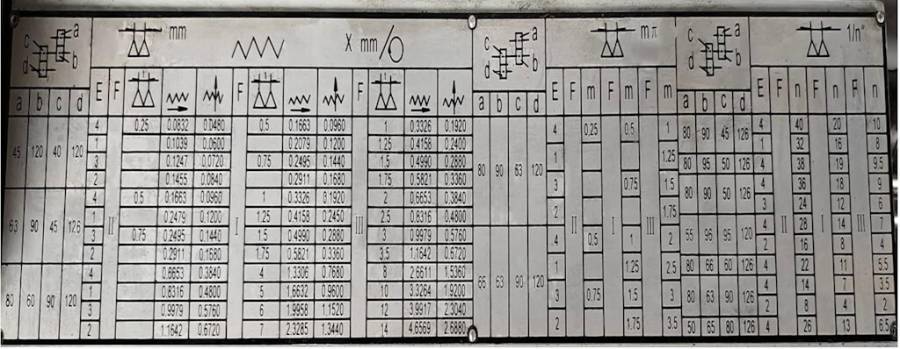 c a d b mm X mm/ c a d b mπ c a d b 1/n"
a b c d E F F F a b c d E F m F m F m a b c d E F n F n F n
45 120 40 120 II I III
4 0.25 0.0832 0.0480 0.5 0.1663 0.0960 1 0.3326 0.1920
1 0.1039 0.0600 0.2079 0.1200 1.25 0.4158 0.2400
3 0.1247 0.0720 0.75 0.2495 0.1440 1.5 0.4990 0.2880
2 0.1455 0.0840 0.2911 0.1680 1.75 0.5821 0.3360
63 90 45 126
4 0.5 0.1663 0.0960 1 0.3326 0.1920 2 0.6653 0.3840
1 0.2479 0.1200 1.25 0.4158 0.2450 2.5 0.8316 0.4800
3 0.75 0.2495 0.1440 1.5 0.4990 0.2880 3 0.9979 0.5760
2 0.2911 0.1680 1.75 0.5821 0.3360 3.5 1.1642 0.6720
80 60 90 120
4 0.6653 0.3840 4 1.3306 0.7680 8 2.6611 1.5360
1 0.8316 0.4800 5 1.6632 0.9600 10 3.3264 1.9200
3 0.9979 0.5760 6 1.9958 1.1520 12 3.9917 2.3040
2 1.1642 0.6720 7 2.3285 1.3440 14 4.6569 2.6880
80 90 63 120 II I III
4 0.25 0.5 1
1 1.25
3 0.75 1.5
2 1.75
63 90 120
4 0.5 1
1 1.25 2.5
3 0.75 1.5 3
2 1.75 3.5
II I III
80 90 45 126 4 40 20 10
1 32 16 8
80 95 50 126 4 38 19 9.5
80 90 50 126 4 36 18 9
3 24 12 6
55 96 95 120 4 28 14 7
2 16 8 4
80 66 60 126 4 22 11 5.5
80 63 90 126 4 14 7 3.5
2 8 4 2
50 65 80 126 4 26 13 6.5